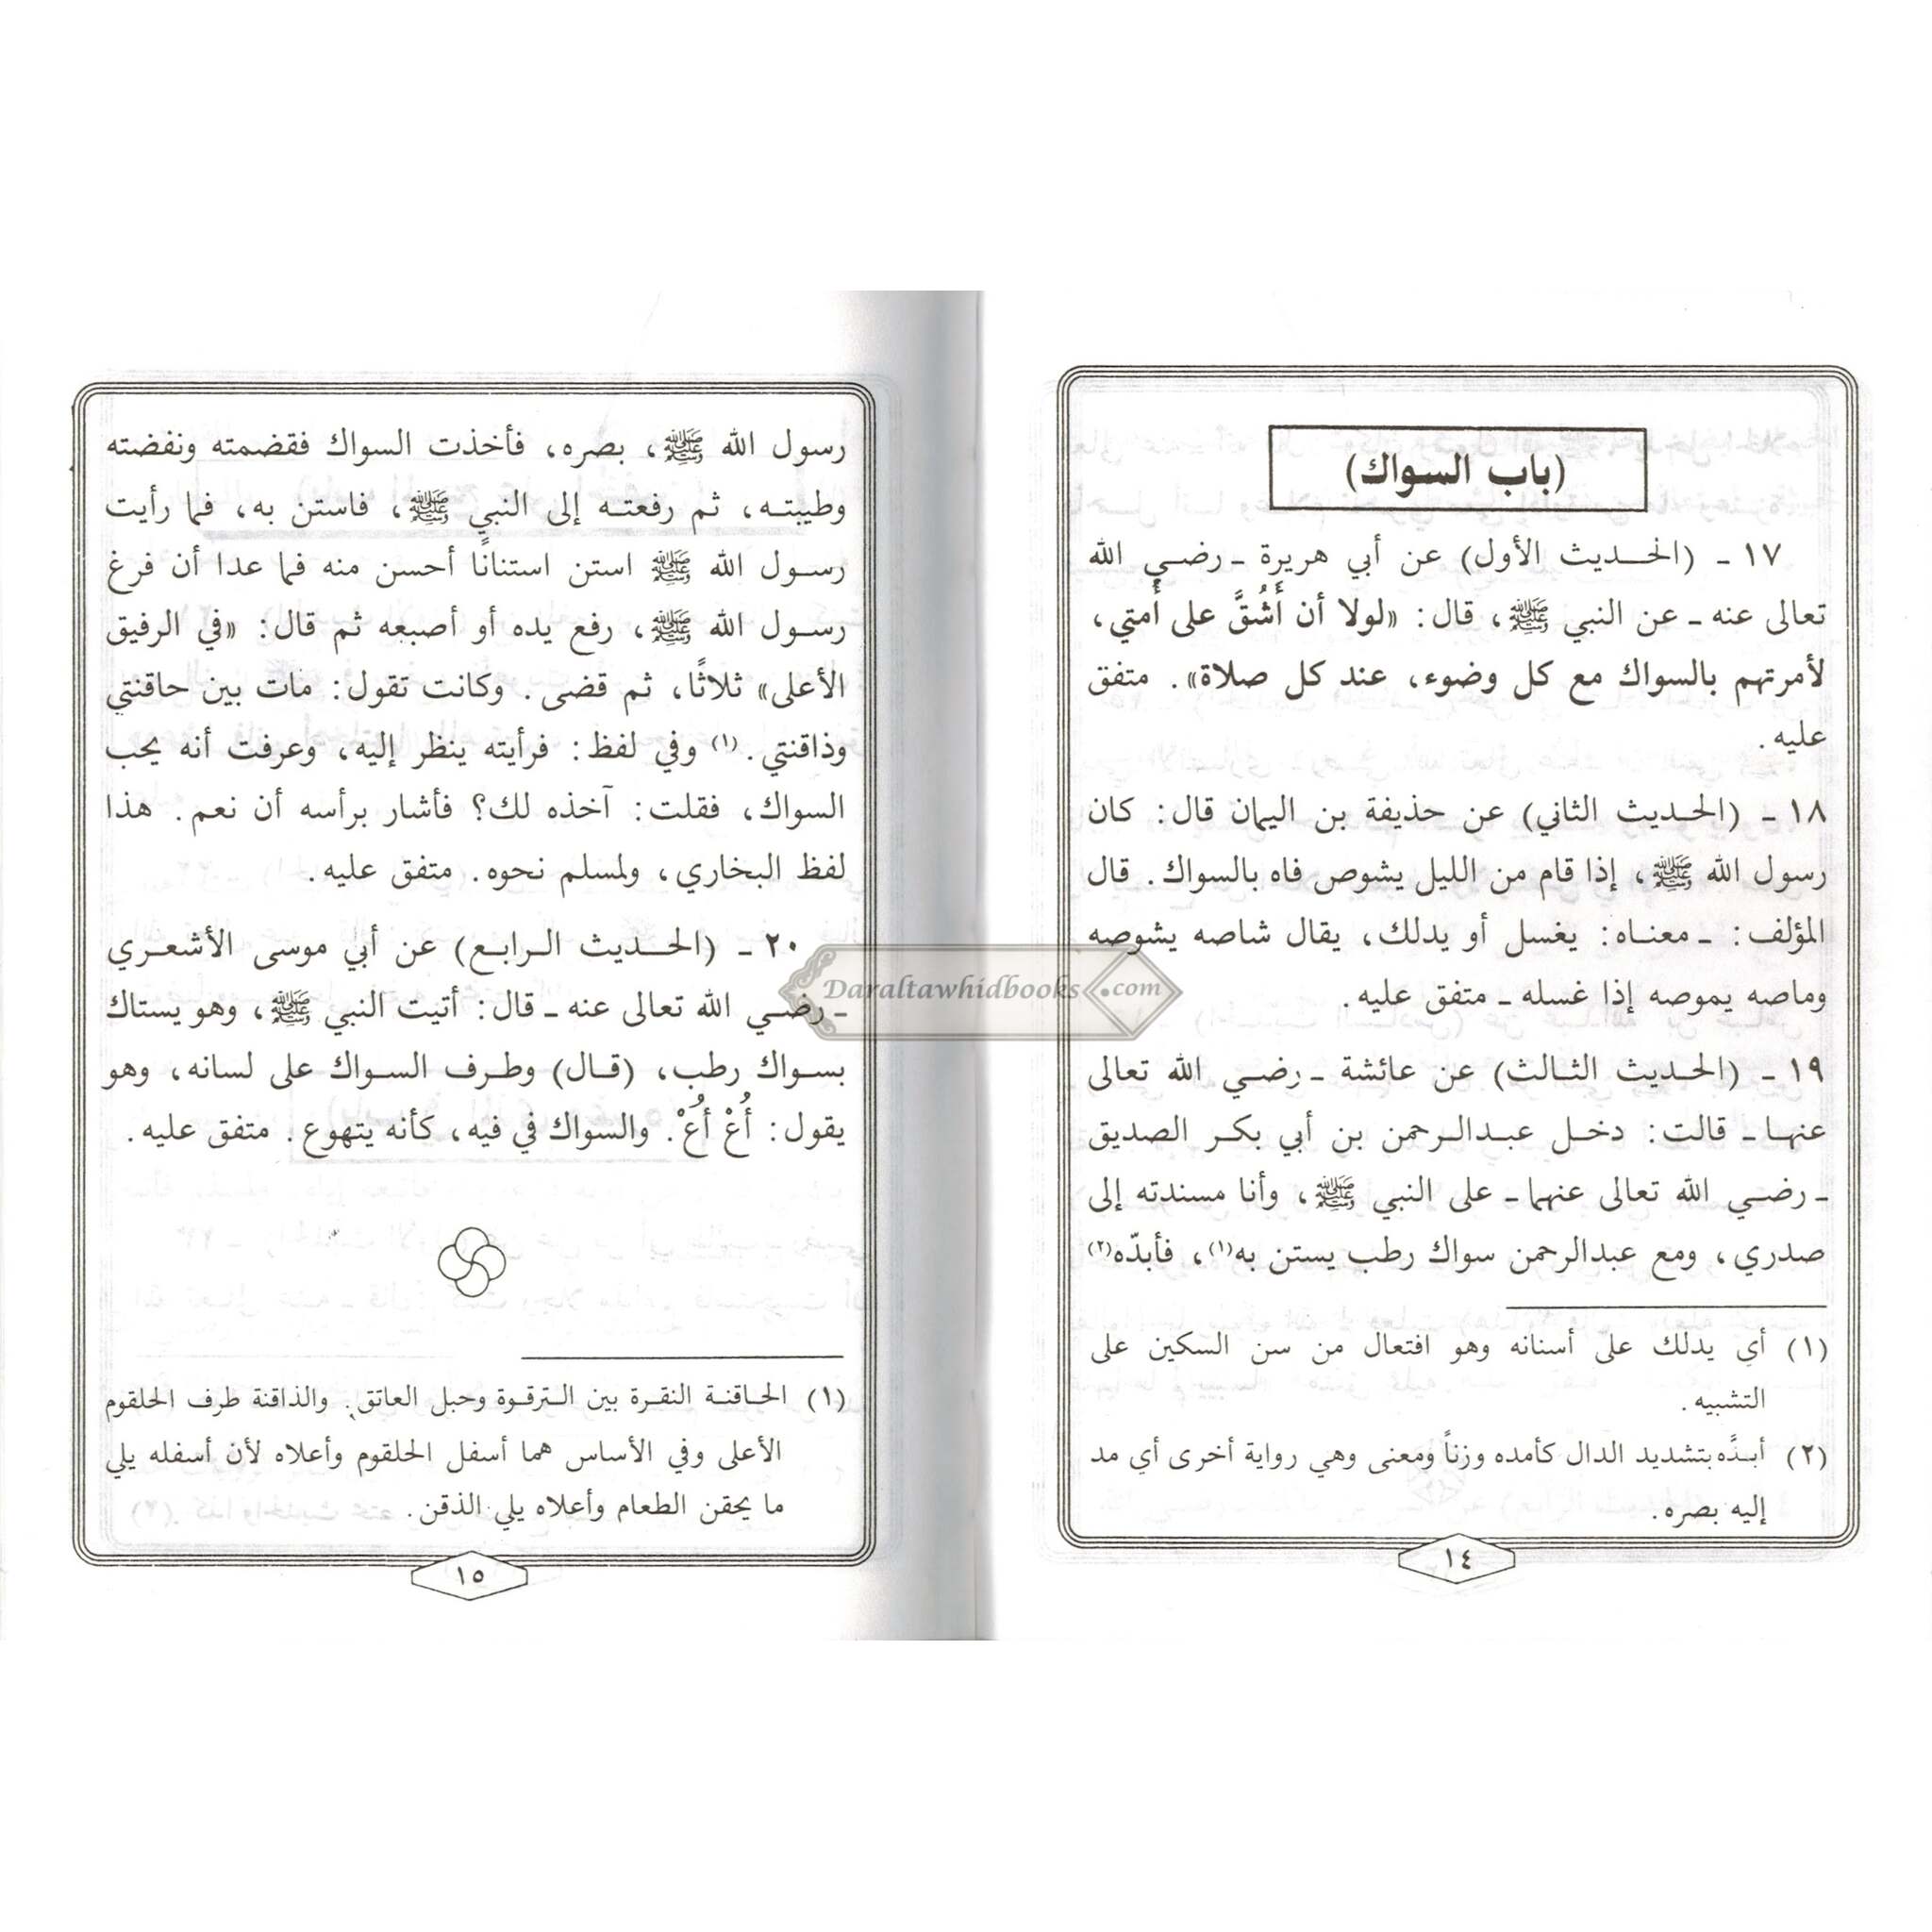 (باب السواك)
١٧ ـ (الحديث الأول) عن أبي هريرة ـ رضي الله
تعالى عنه ـ عن النبي ﷺ، قال: «لولا أن أَشُقَّ على أُمتي،
لأمرتهم بالسواك مع كل وضوء، عند كل صلاة». متفق
عليه.
١٨ ـ (الحديث الثاني) عن حذيفة بن اليمان قال: كان
رسول الله ﷺ، إذا قام من الليل يشوص فاه بالسواك. قال
المؤلف: ـ معناه: يغسل أو يدلك، يقال شاصه يشوصه
وماصه يموصه إذا غسله ـ متفق عليه.
١٩ ـ (الحديث الثالث) عن عائشة ـ رضي الله تعالى
عنها ـ قالت: دخل عبدالرحمن بن أبي بكر الصديق
ـ رضي الله تعالى عنهما ـ على النبي ﷺ، وأنا مسندته إلى
صدري، ومع عبدالرحمن سواك رطب يستن به(١)، فأبدّه(٢)
(١) أي يدلك على أسنانه وهو افتعال من سن السكين على
التشبيه.
(٢) أبدَّه بتشديد الدال كأمده وزناً ومعنى وهي رواية أخرى أي مد
إليه بصره.
١٤
رسول الله ﷺ، بصره، فأخذت السواك فقضمته ونفضته
وطيبته، ثم رفعته إلى النبي ﷺ، فاستن به، فما رأيت
رسول الله ﷺ استن استنانًا أحسن منه فما عدا أن فرغ
رسول الله ﷺ، رفع يده أو أصبعه ثم قال: «في الرفيق
الأعلى» ثلاثًا، ثم قضى. وكانت تقول: مات بين حاقنتي
وذاقنتي.(١) وفي لفظ: فرأيته ينظر إليه، وعرفت أنه يحب
السواك، فقلت: آخذه لك؟ فأشار برأسه أن نعم. هذا
لفظ البخاري، ولمسلم نحوه. متفق عليه.
٢٠ ـ (الحديث الرابع) عن أبي موسى الأشعري
ـ رضي الله تعالى عنه ـ قال: أتيت النبي ﷺ، وهو يستاك
بسواك رطب، (قال) وطرف السواك على لسانه، وهو
يقول: أُعْ أُعْ. والسواك في فيه، كأنه يتهوع. متفق عليه.
(١) الحاقنة النقرة بين الترقوة وحبل العاتق. والذاقنة طرف الحلقوم
الأعلى وفي الأساس هما أسفل الحلقوم وأعلاه لأن أسفله يلي
ما يحقن الطعام وأعلاه يلي الذقن.
١٥
Daraltawhidbooks.com